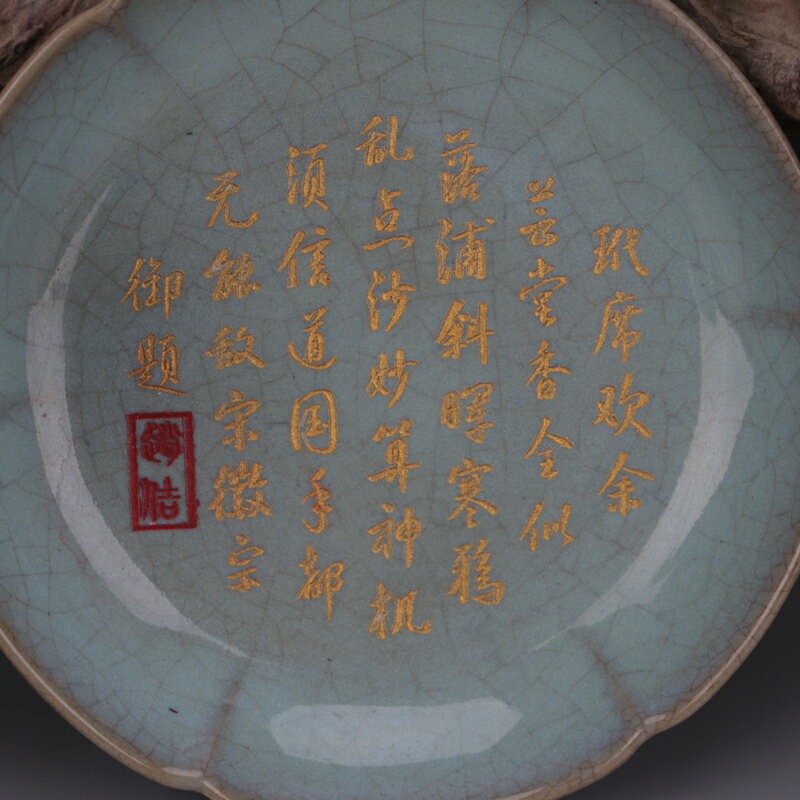 玳席欢余
芸堂香全似
落浦斜晖寒鸦
乱点沙妙算神机
须信道国手都
无能敌宋徽宗
御题
赵佶